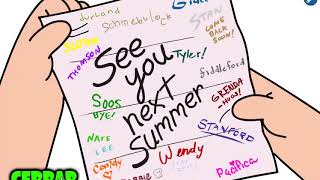 Durland
Schmebulock
STAN
COME
BACK
SOON!
SUSAN
THOMSON
See
you
next
summer
Tyler!
fiddleford
Soos
BYE!
GRENDA
-HUGS!
STANFORD
NATE
LEE
Candy
Wendy
Pacifica
CERRAR